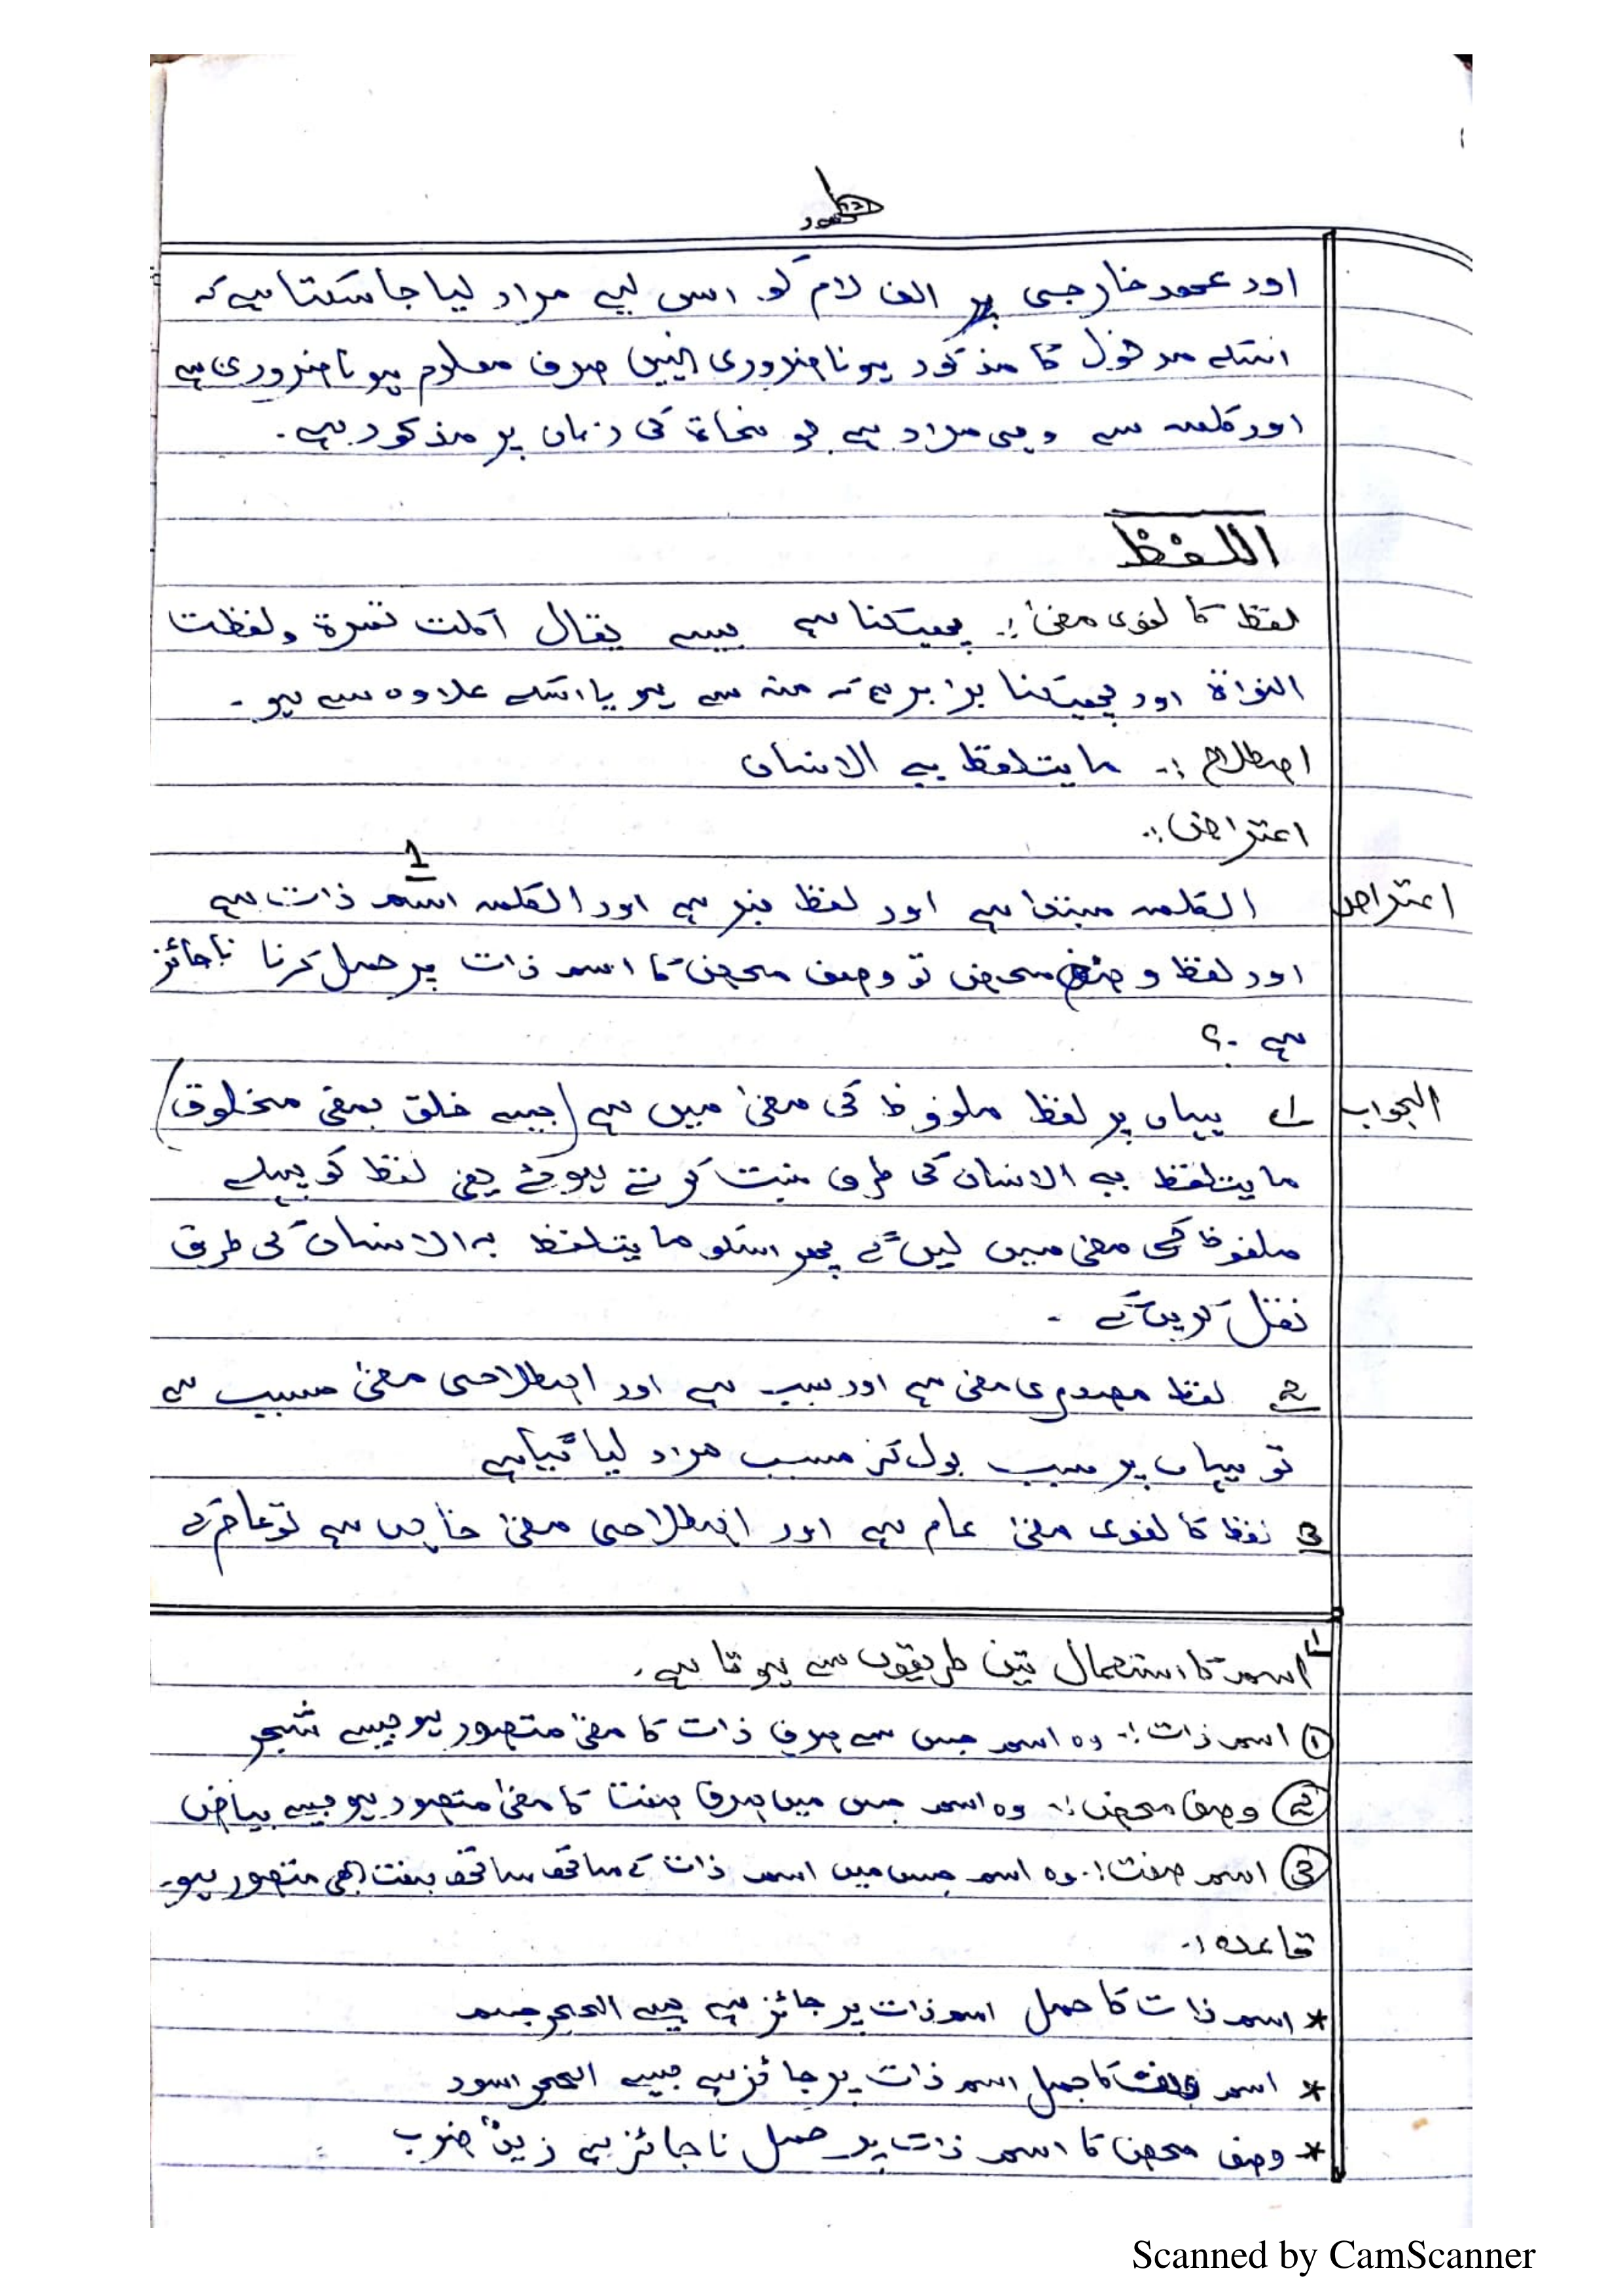 اور عھود خارجی پر الف لام کو اس لیے مراد لیا جا سکتا ہے کہ
اسکے مدخول کا مذکور ہونا ضروری نہیں صرف معلوم ہونا ضروری ہے
اور کلمہ سے وہی مراد ہے جو نحاۃ کی زبان پر مذکور ہے۔
اللفظ
لفظ کا لغوی معنیٰ:۔ پھینکنا ہے جیسے یقال اکلت تمرة ولفظت
النواة اور پھینکنا برابر ہے کہ منہ سے ہو یا اسکے علاوہ سے ہو۔
اصطلاح:۔ ما یتلفظ بہ الانسان
اعتراض:۔
1
اعتراض الکلمہ مبتدا ہے اور لفظ خبر ہے اور الکلمہ اسم ذات ہے
اور لفظ وصف محض تو وصف محض کا اسم ذات پر حمل کرنا ناجائز
ہے۔؟
الجواب 1 یہاں پر لفظ ملفوظ کی معنیٰ میں ہے (جیسے خلق بمعنی مخلوق)
ما یتلفظ بہ الانسان کی طرف نسبت کرتے ہوئے یعنی لفظ کو پہلے
ملفوظ کی معنی میں لیں گے پھر اسکو ما یتلفظ بہ الانسان کی طرف
نقل کریں گے۔
2 لفظ مصدری معنی ہے اور سبب ہے اور اصطلاحی معنیٰ مسبب ہے
تو یہاں پر سبب بول کر مسبب مراد لیا گیا ہے
3 لفظ کا لغوی معنیٰ عام ہے اور اصطلاحی معنیٰ خاص ہے تو عام کرکے
1 اسم کا استعمال تین طریقوں سے ہوتا ہے۔
① اسم ذات:۔ وہ اسم جس سے صرف ذات کا معنیٰ متصور ہو جیسے شجر
② وصف محض:۔ وہ اسم جس میں صرف صفت کا معنیٰ متصور ہو جیسے بیاض
③ اسم صفت:۔ وہ اسم جس میں اسم ذات کے ساتھ ساتھ صفت بھی متصور ہو۔
قاعدہ:۔
* اسم ذات کا حمل اسم ذات پر جائز ہے جیسے الحجر جسم
* اسم صفت کا حمل اسم ذات پر جائز ہے جیسے الحجر اسود
* وصف محض کا اسم ذات پر حمل ناجائز ہے زیدٌ ضرب
Scanned by CamScanner